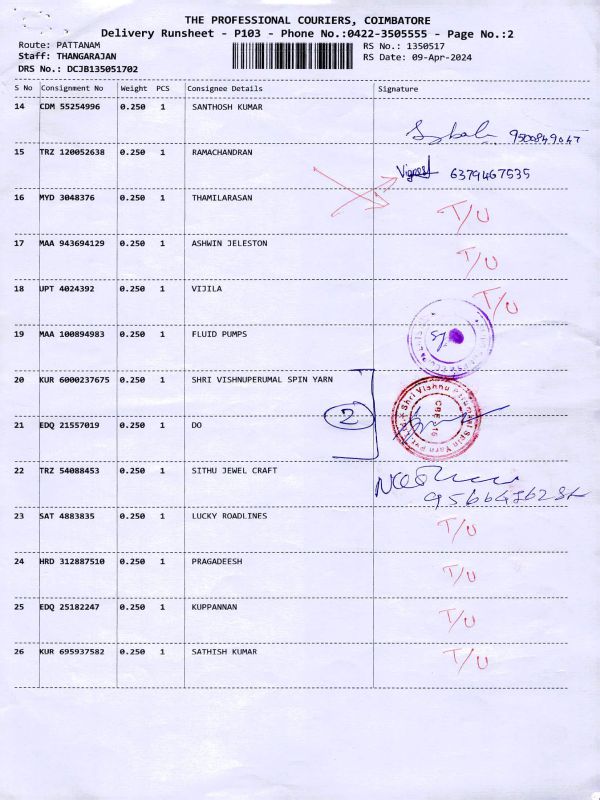 THE PROFESSIONAL COURIERS, COIMBATORE
Delivery Runsheet - P103 - Phone No.:0422-3505555 - Page No.:2
Route: PATTANAM RS No.: 1350517
Staff: THANGARAJAN RS Date: 09-Apr-2024
DRS No.: DCJB135051702
S No Consignment No Weight PCS Consignee Details Signature
14 CDM 55254996 0.250 1 SANTHOSH KUMAR
9500849047
15 TRZ 120052638 0.250 1 RAMACHANDRAN
6379467535
16 MYD 3048376 0.250 1 THAMILARASAN T/U
17 MAA 943694129 0.250 1 ASHWIN JELESTON T/U
18 UPT 4024392 0.250 1 VIJILA T/U
19 MAA 100894983 0.250 1 FLUID PUMPS
20 KUR 6000237675 0.250 1 SHRI VISHNUPERUMAL SPIN YARN
2
21 EDQ 21557019 0.250 1 DO
22 TRZ 54088453 0.250 1 SITHU JEWEL CRAFT
23 SAT 4883835 0.250 1 LUCKY ROADLINES T/U
24 HRD 312887510 0.250 1 PRAGADEESH T/U
25 EDQ 25182247 0.250 1 KUPPANNAN T/U
26 KUR 695937582 0.250 1 SATHISH KUMAR T/U